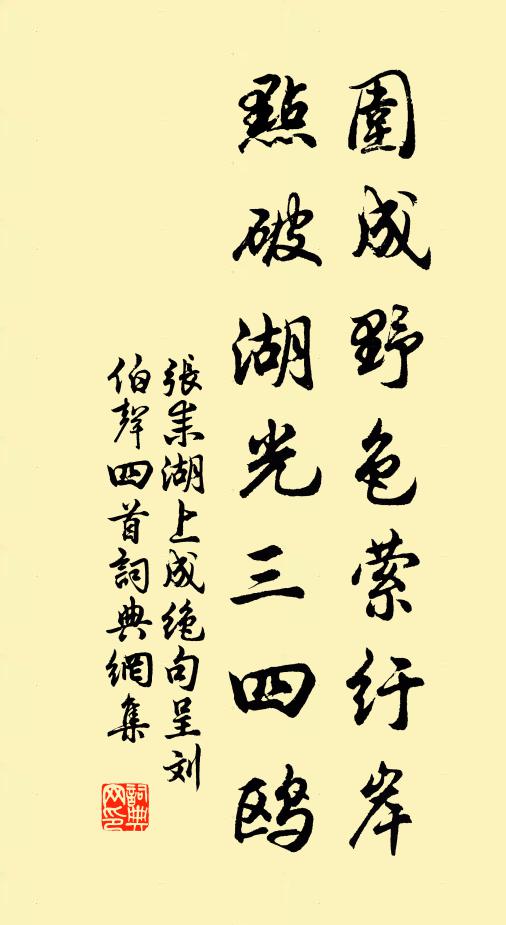 圍成野色縈紆岸
點破湖光三四鸥
張耒湖上成絶句呈刘
伯聲四首詞典網集
詞典
网印